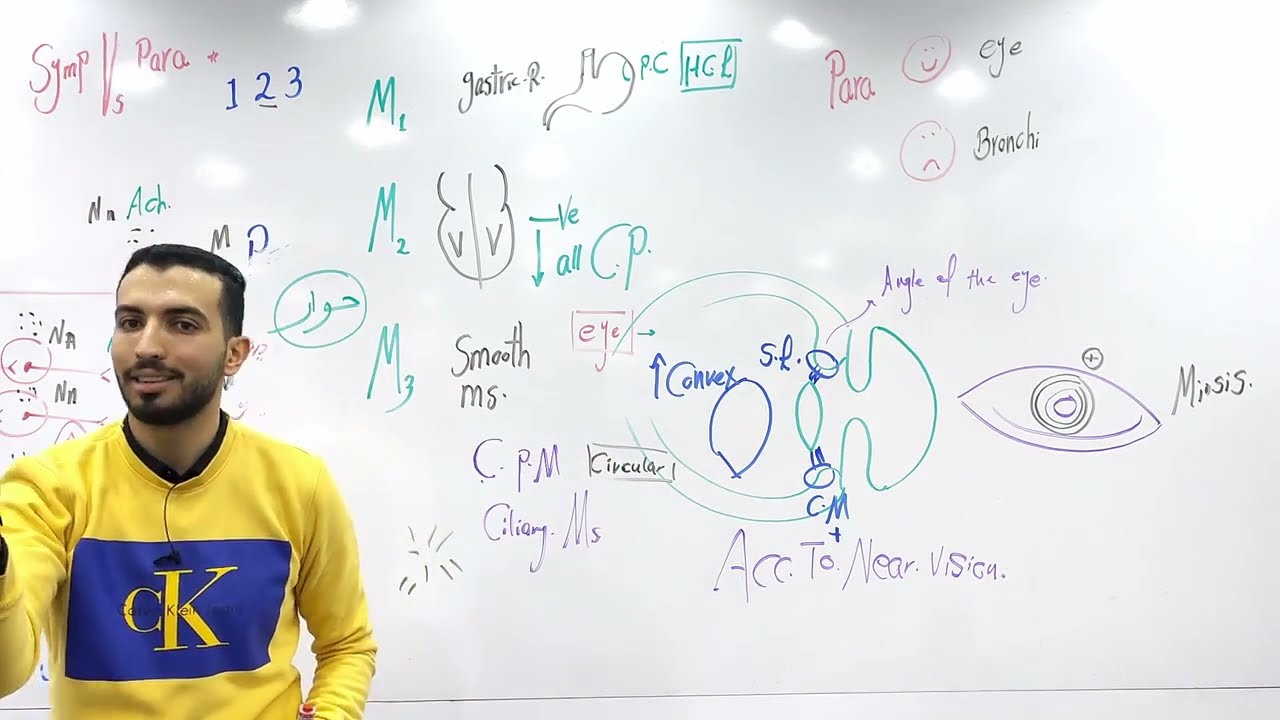 Symp Vs Para *
1 2 3
M1 gastric.R. P.C HCL
Para eye
Bronchi
Nn Ach.
M
M2 V V -Ve
all C.P.
حوار
Nn
Nn
M3 Smooth
ms.
eye →
Angle of the eye.
S.L.
↑Convex
+
Miosis.
C.P.M Circular
Ciliary.Ms
C.M
+
Acc. To. Near. Vision.
CK
Calvin Klein Jeans